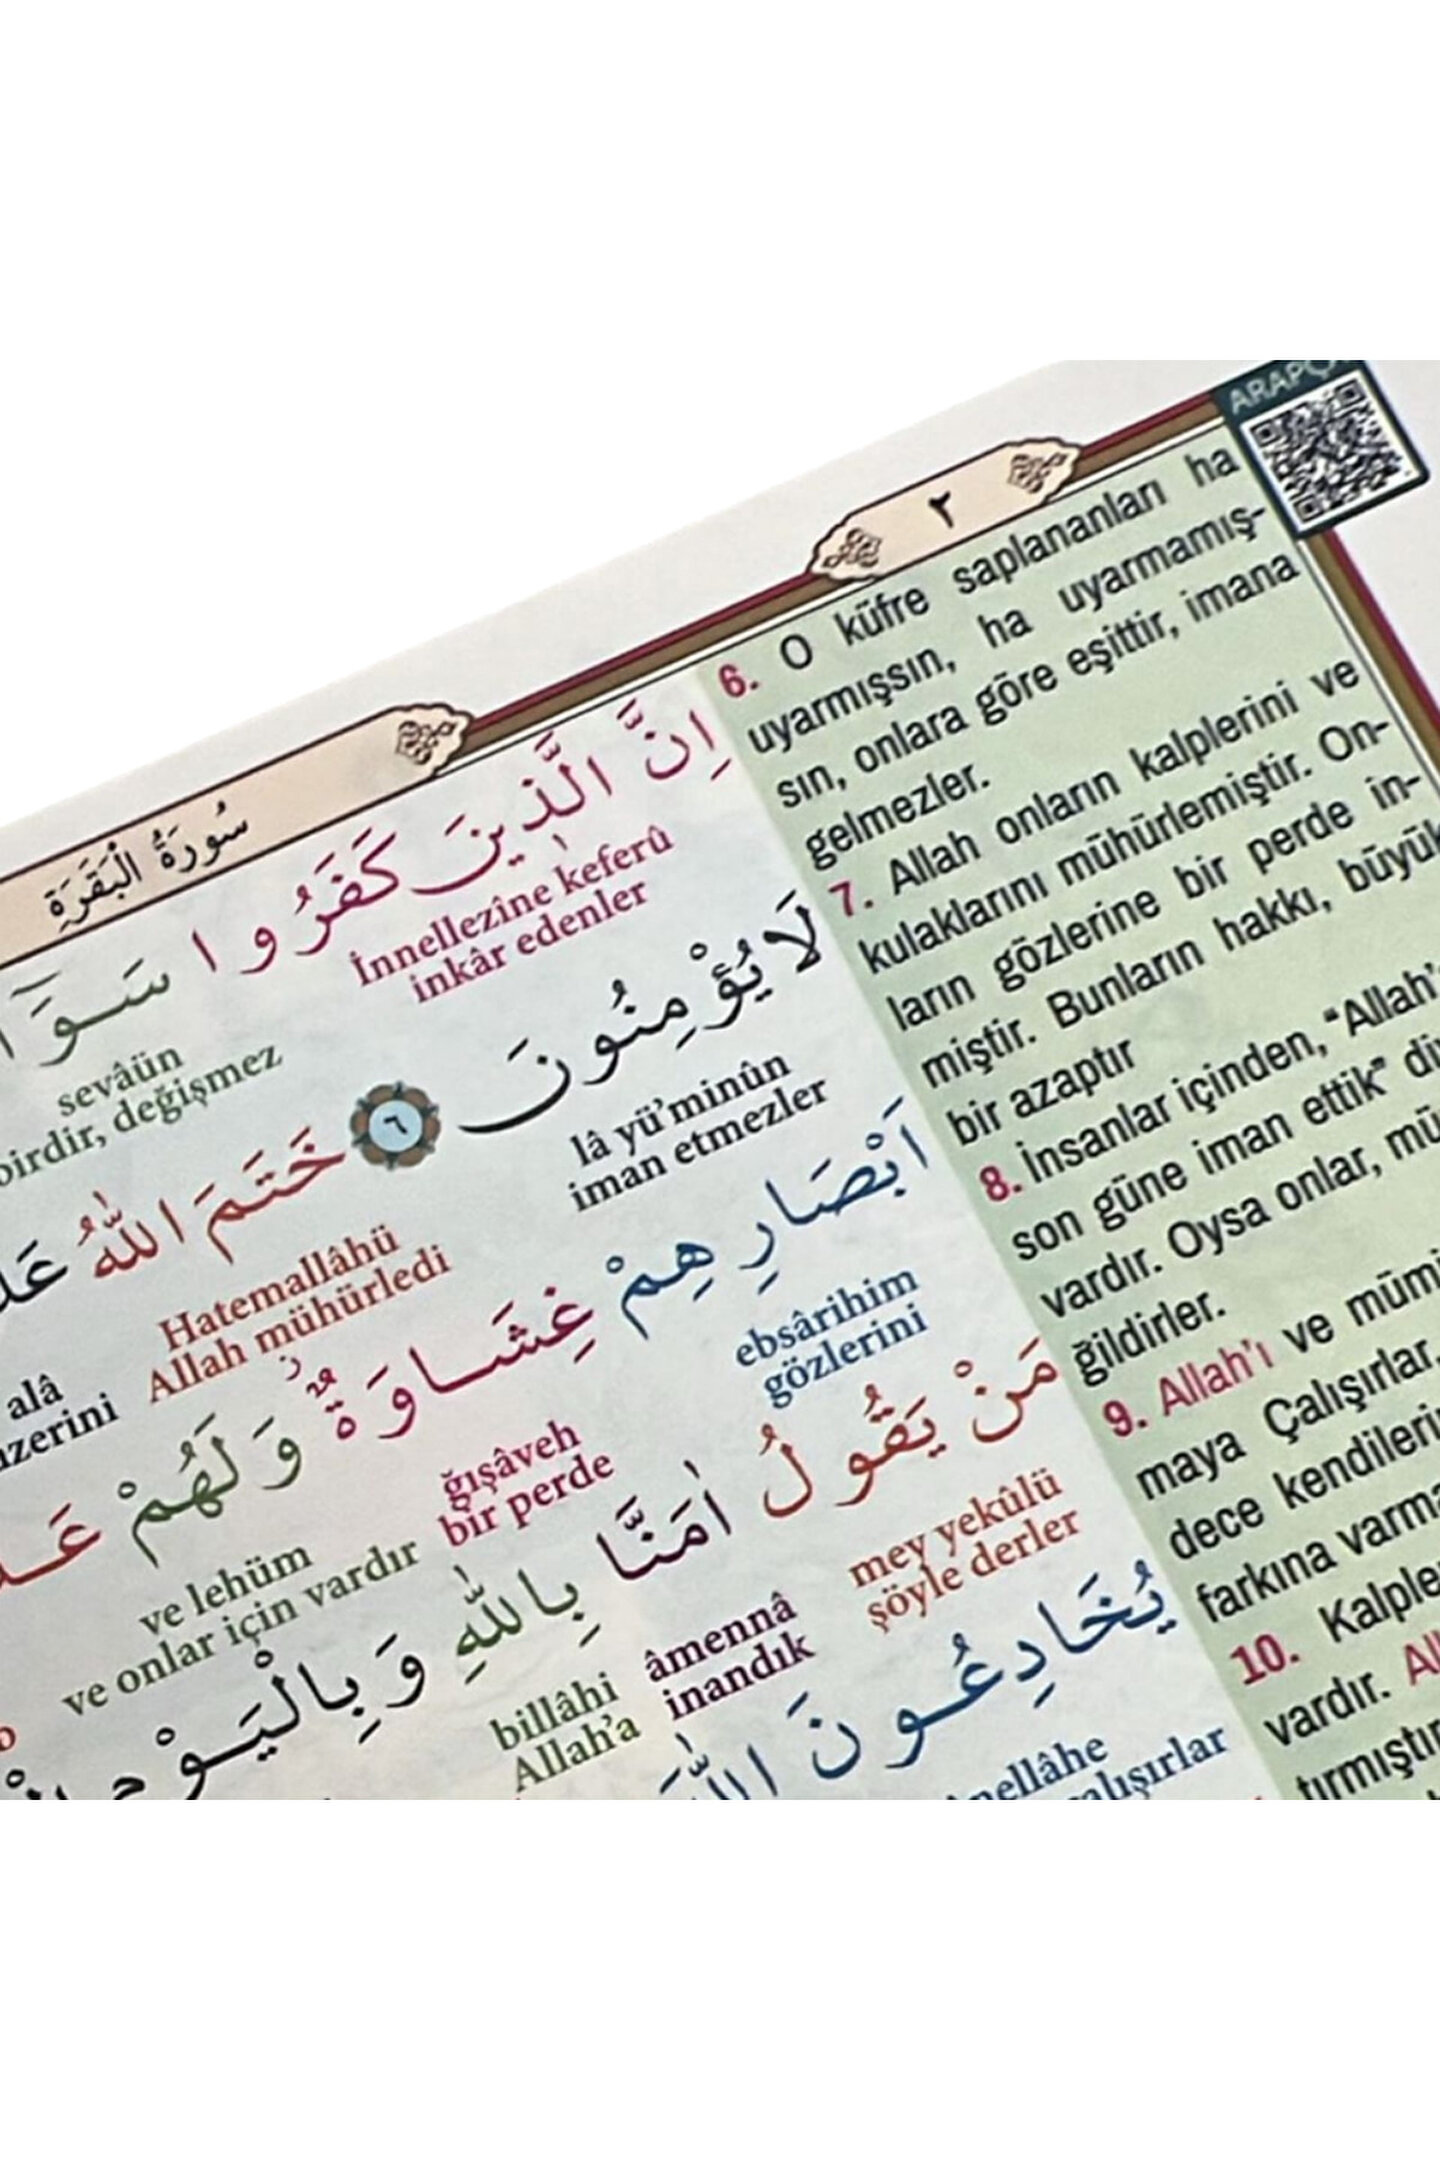 سُورَةُ الْبَقَرَةِ
٢
اِنَّ الَّذِينَ كَفَرُوا سَوَٓاءٌ
İnnellezîne keferû
inkâr edenler
sevâün
birdir, değişmez
لَا يُؤْمِنُونَ ٦ خَتَمَ اللّٰهُ
lâ yü'minûn
iman etmezler
Hatemallâhü
Allah mühürledi
alâ
üzerini
اَبْصَارِهِمْ غِشَاوَةٌ وَلَهُمْ
ebsârihim
gözlerini
ğışâveh
bir perde
ve lehüm
ve onlar için vardır
مَنْ يَقُولُ اٰمَنَّا بِاللّٰهِ وَبِالْيَوْمِ
mey yekûlü
şöyle derler
âmennâ
inandık
billâhi
Allah'a
يُخَادِعُونَ اللّٰهَ
6. O küfre saplananları ha
uyarmışsın, ha uyarmamış-
sın, onlara göre eşittir, imana
gelmezler.
7. Allah onların kalplerini ve
kulaklarını mühürlemiştir. On-
ların gözlerine bir perde in-
miştir. Bunların hakkı, büyük
bir azaptır
8. İnsanlar içinden, "Allah'
son güne iman ettik"
vardır. Oysa onlar,
ğildirler.
9. Allah'ı ve
maya Çalışırlar,
dece
farkına
10.
vardır.